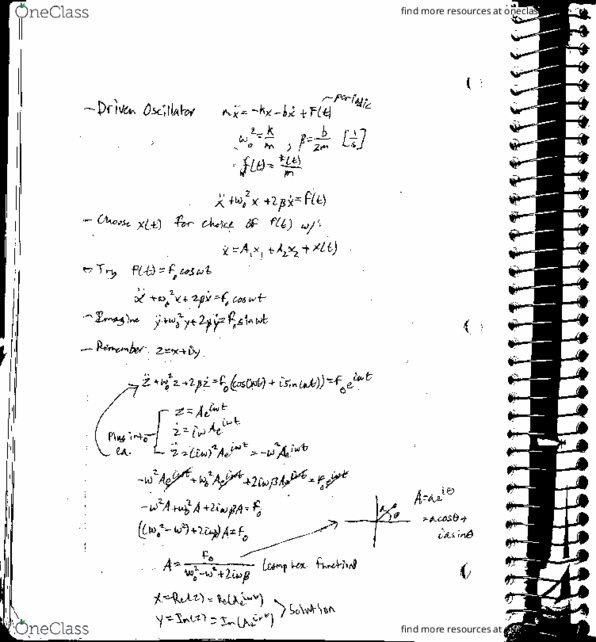 OneClass
find more resources at oneclass
- Driven Oscillator mẍ = -kx - bẋ + F(t)
periodic
ω₀² = k/m ; β = b/2m [1/s]
f(t) = F(t)/m
ẍ + ω₀²x + 2βẋ = f(t)
- Choose x(t) for choice of f(t) w/:
x = A₁x₁ + A₂x₂ + x(t)
- Try f(t) = f₀cosωt
ẍ + ω₀²x + 2βẋ = f₀cosωt
- Imagine ÿ + ω₀²y + 2βẏ = f₀sinωt
- Remember z = x + iy
z̈ + ω₀²z + 2βż = f₀(cos(ωt) + isin(ωt)) = f₀e^{iωt}
Plug into
eq.
z = Ae^{iωt}
ż = iωAe^{iωt}
z̈ = (iω)²Ae^{iωt} = -ω²Ae^{iωt}
-ω²Ae^{iωt} + ω₀²Ae^{iωt} + 2iωβAe^{iωt} = f₀e^{iωt}
-ω²A + ω₀²A + 2iωβA = f₀
((ω₀² - ω²) + 2iωβ)A = f₀
A = ae^{iθ}
= acosθ +
iasinθ
A = f₀/(ω₀² - ω² + 2iωβ) (complex function)
x = Re(z) = Re(Ae^{iωt})
y = Im(z) = Im(Ae^{iωt})
Solution
OneClass
find more resources at oneclass